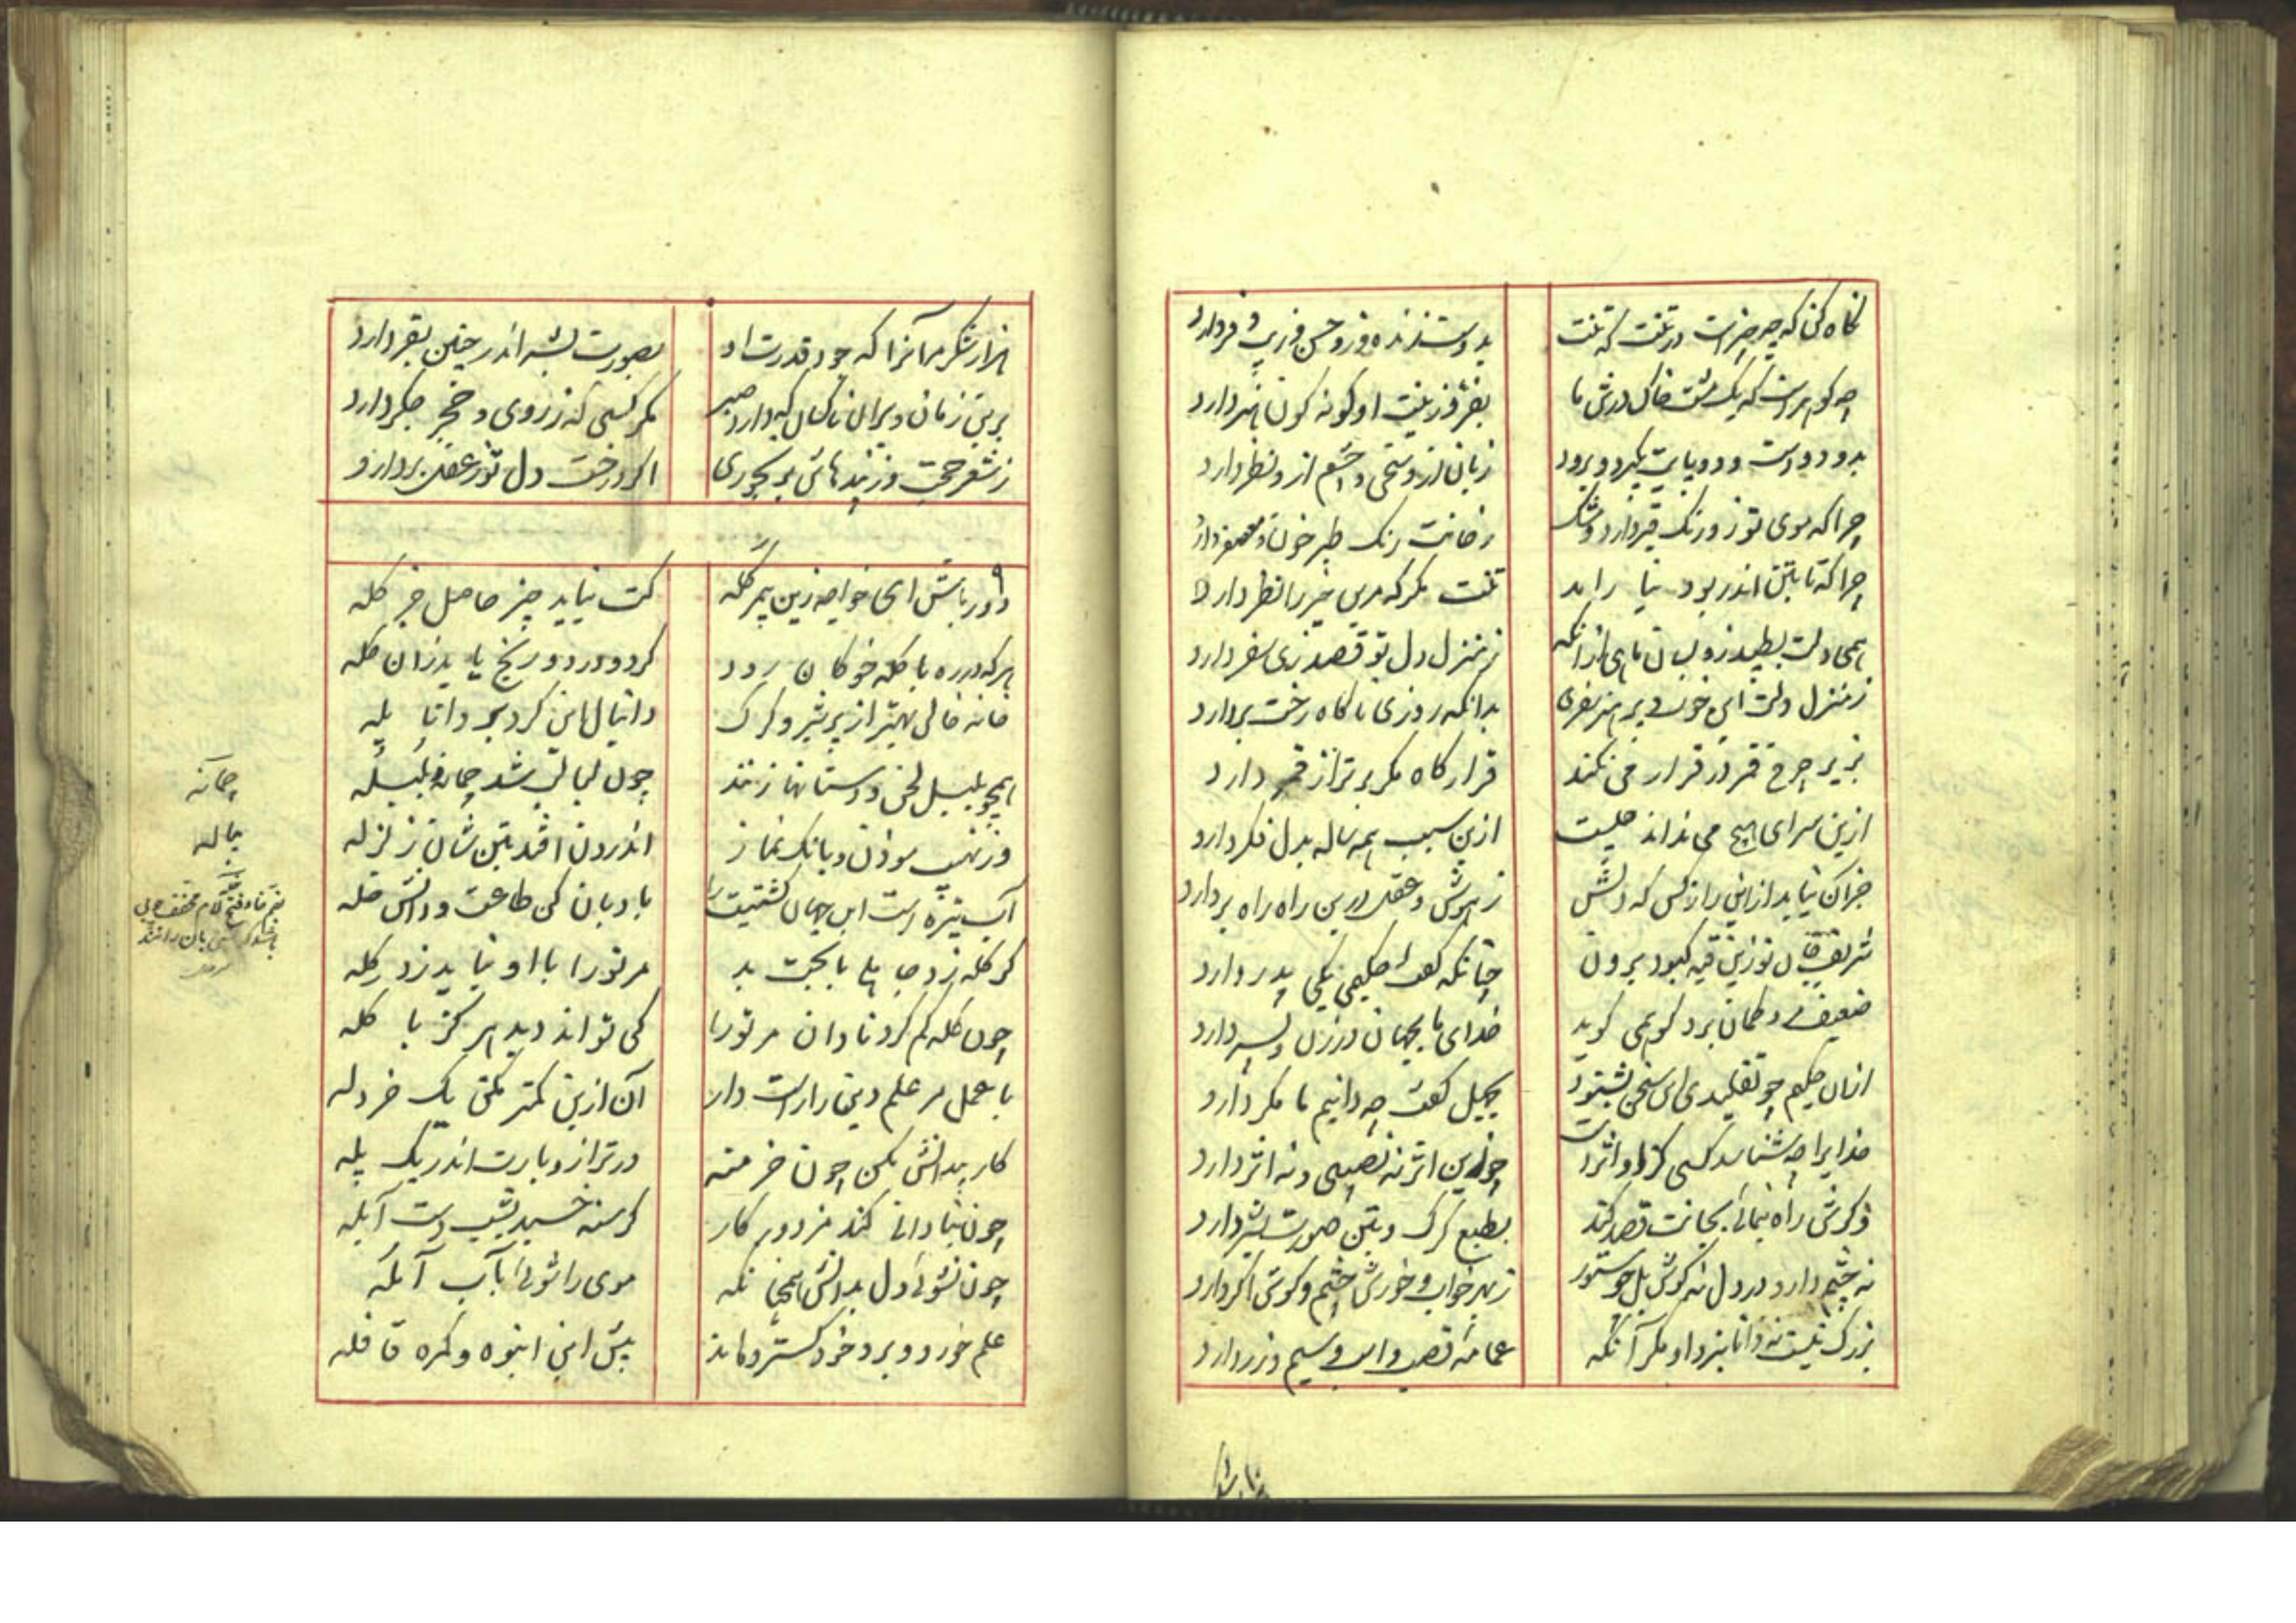 نگاه کن که چه چیزست در تنت که تنت
بدوست زنده و زو حسن و زیب و فر دارد
چه گوهرست که یک مشت خاک در تن ما
بفر و زینت او گونه گون هنر دارد
بدو دو دست و دو پایت بگیرد و برود
زبان ازو سخن و چشم ازو نظر دارد
چرا که موی تو زو رنگ قیر دارد و مشک
رخانت رنگ طبرخون و معصفر دارد
چرا که تا بتن اندر بود نیاراید
تنت مگر که درین خیر را نظر دارد
همی دلت بطپد زو بسان ماهی ازانکه
ز منزل دل تو قصد زی سفر دارد
ز منزل دلت این خوب و پر هنر سفری
بدانکه روزی ناگاه رخت بردارد
بزیر چرخ قمر در قرار می نکند
قرارگاه مگر برتر از قمر دارد
ازین سرای هیچ می نداند چیست
ازین سبب همه ساله بدل فکر دارد
جز آن نیابد ازین راز کس که دلش
ز هوش و عقل درین راه راه بر دارد
شریف جان تو زین قبه کبود برون
چنانکه گفت حکیمی یکی پدر دارد
ضعیف مرد گمان برد کو همی گوید
خدای ما بجهان در زن و پسر دارد
از آن حکیم چو تقلیدی این سخن بشنود
بجهل گفت چه دانیم ما مگر دارد
خدایرا چه شناسد کسی کز او اثرست
چو زین اثر نه نصیبی و نه اثر دارد
وگرش راه نمائی بجانت قصد کند
بطبع گرگ و بتن صورت بشر دارد
نه چشم دارد در دل نه گوش بل چو ستور
ز بهر خواب و خورش چشم و گوش اگر دارد
بزرگ نیست نه دانا بنزد او مگر آنکه
عمامه قصب و اسب و سیم و زر دارد
هزار شکر مر آنرا که جود قدرت او
بصورت بشر اندر چنین بقر دارد
برین زمان و بر این ناکسان که دارد صبر
مگر کسی که ز روی و خجر جگر دارد
ز شعر حجت وز پندهاش بر بخوری
اگر درخت دل تو ز عقل بر دارد
دور باش ای خواجه زین بیمر گله
کت نیاید چیز حاصل جز گله
هر که در ره با گله خوکان رود
گرد و درد و رنج یابد زان گله
خانه خالی بهتر از پر شیر و گرگ
دانیال این کرد بر دانا یله
همچو بلبل لحن و دستانها زنند
چون لبالب شد چمانه و بلبله
وز نهیب موذن و بانگ نماز
اندرون افتد بتن شان زلزله
آب تیره است این جهان کشتیت را
بادبان کن طاعت و دانش خله
گر گله زد جاهلی با بخت بد
مر تو را با او نباید زد گله
چون کله گم کرد نادان مر تو را
کی تواند دید هرگز با کله
با عمل مر علم دین را راست دار
آن ازین کمتر مکن یک خردله
کار بیدانش مکن چون خر منه
در ترازو بارت اندر یک پله
چون بنادانی کند مزدور کار
گرسنه خسبد بشب دست آبله
چون نشوئی دل بدانش همچنانکه
موی را شوئی بآب آبله
علم خورد و برد خود گسترده ماند
پیش این انبوه و گمره قافله
چمانه
پیاله